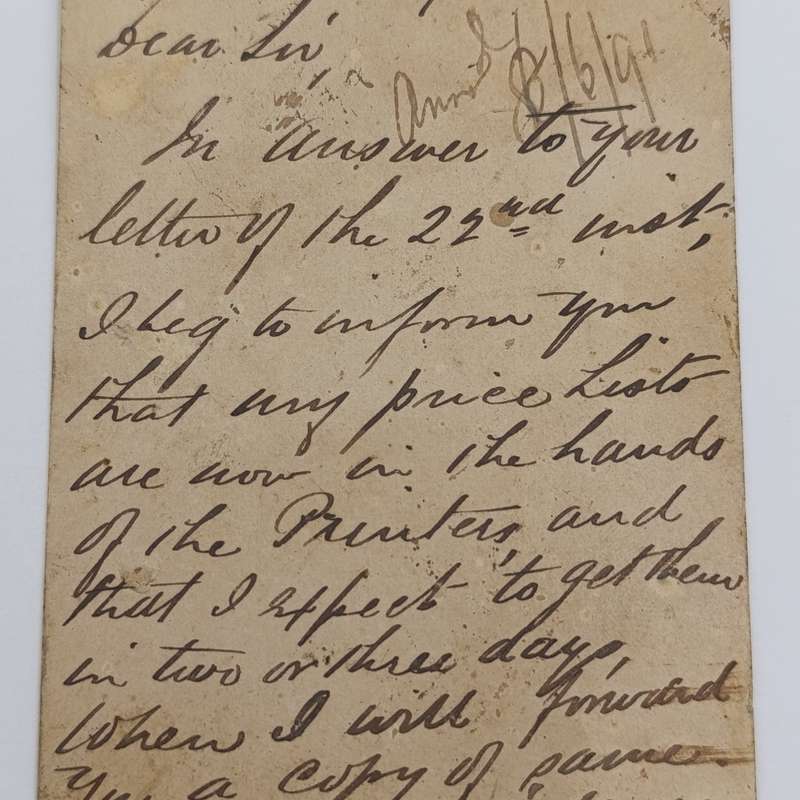 Dear Sir,
8/6/91
In answer to your
letter of the 22nd inst,
I beg to inform you
that my price Lists
are now in the hands
of the Printers, and
that I expect to get them
in two or three days,
When I will forward
You a copy of same.